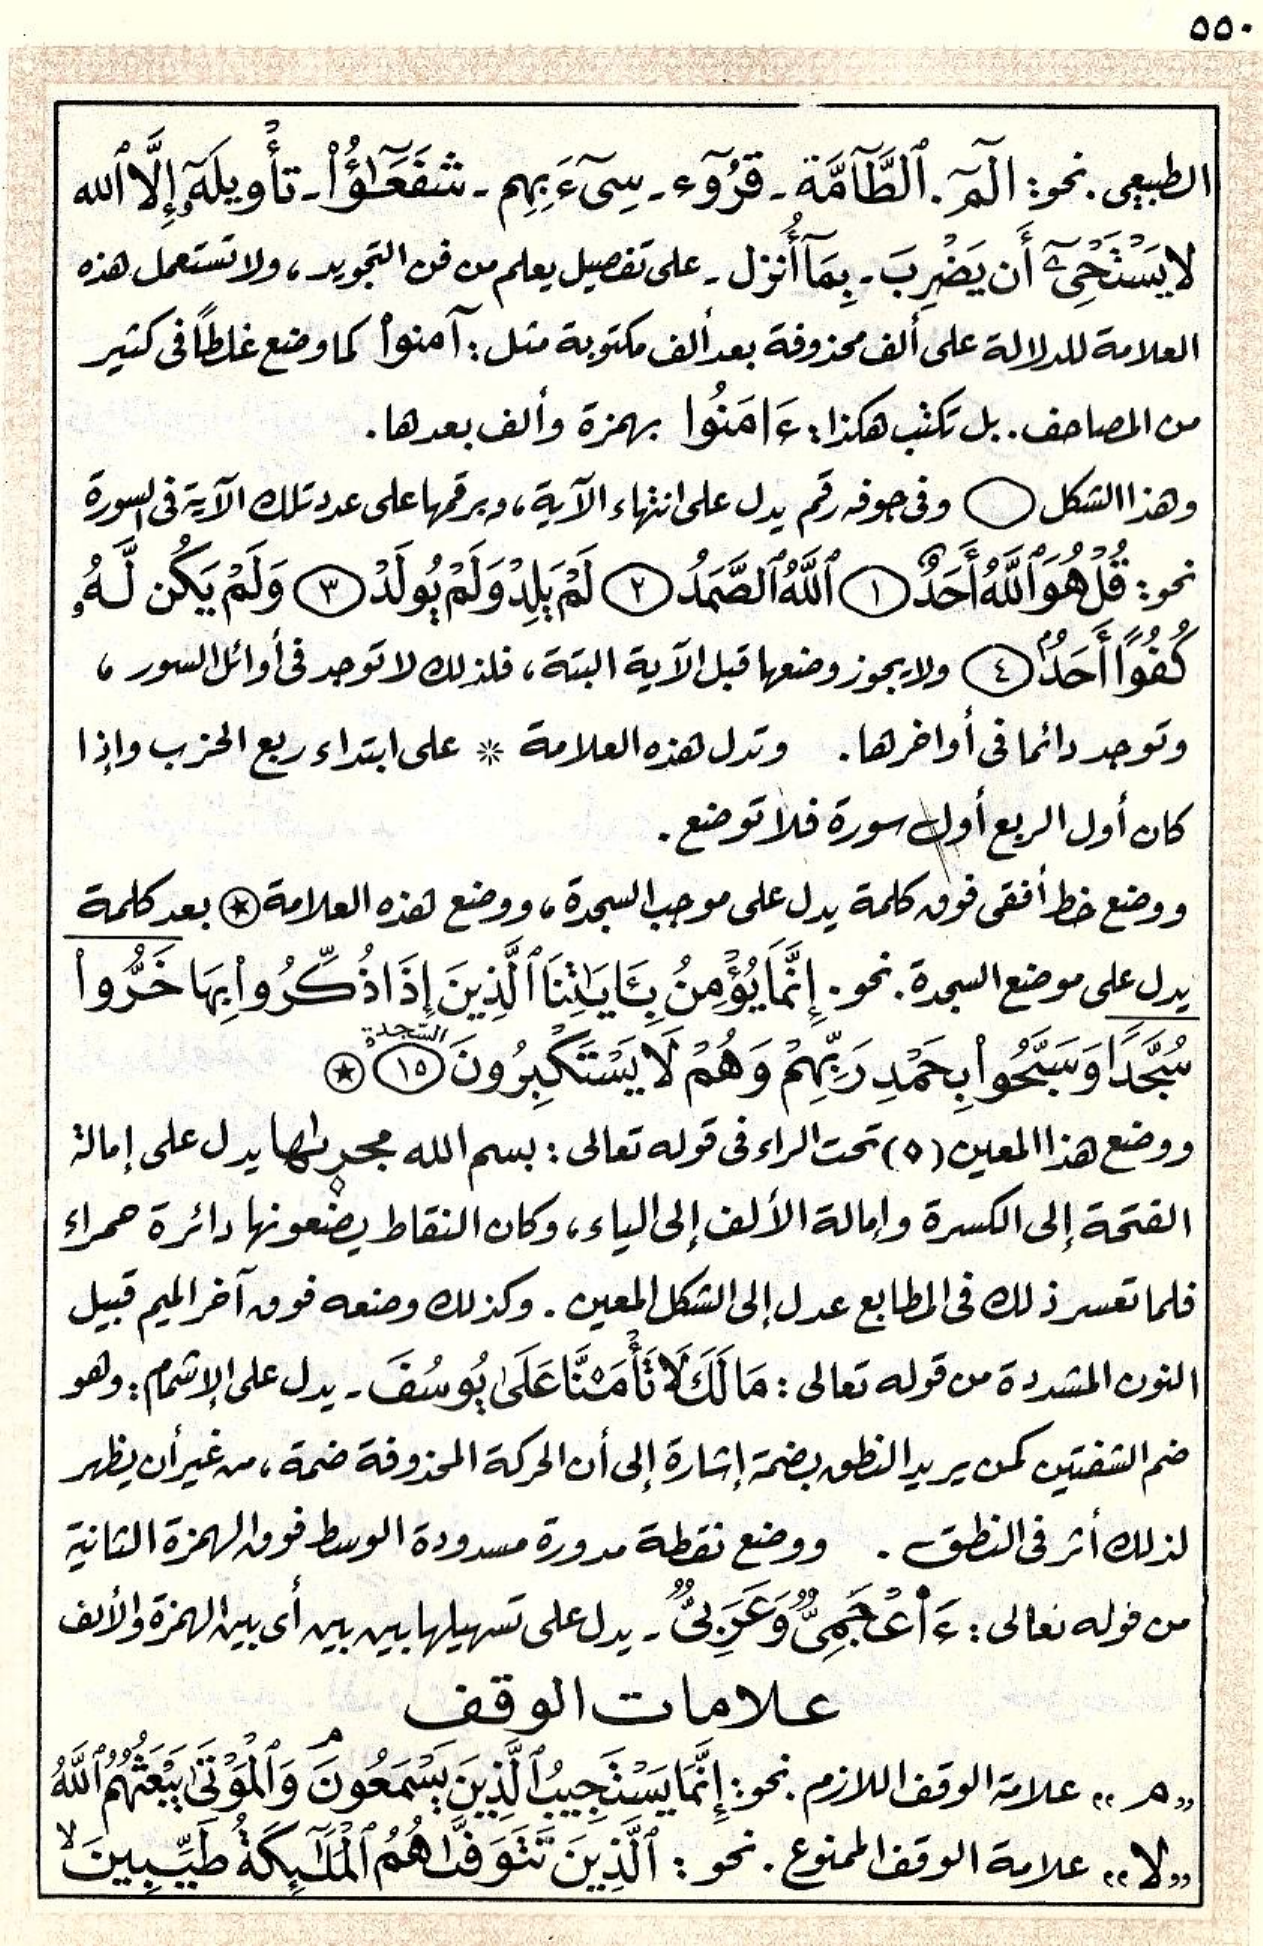 ٥٥٠
الطبيعى. نحو: الٓمٓ. ٱلطَّآمَّة ـ قُرُوٓء ـ سِىٓءَ بِهِم ـ شُفَعَـٰٓؤُا۟ ـ تَأْوِيلَهُۥٓ إِلَّا ٱلله
لَا يَسْتَحْىِۦٓ أَن يَضْرِبَ ـ بِمَآ أُنزل ـ على تفصيل يعلم من فن التجويد، ولا تستعمل هذه
العلامة للدلالة على ألف محذوفة بعد ألف مكتوبة مثل: آمنوا۟ كما وضع غلطاً فى كثير
من المصاحف. بل تكتب هكذا: ءَامَنُوا بهمزة وألف بعدها.
وهذا الشكل ۝ وفى جوفه رقم يدل على انتهاء الآية، وبرقمها على عدد تلك الآية فى السورة
نحو: قُلْ هُوَ ٱللَّهُ أَحَدٌ ١ ٱللَّهُ ٱلصَّمَدُ ٢ لَمْ يَلِدْ وَلَمْ يُولَدْ ٣ وَلَمْ يَكُن لَّهُۥ
كُفُوًا أَحَدٌۢ ٤ ولا يجوز وضعها قبل الآية البتة، فلذلك لا توجد فى أوائل السور،
وتوجد دائما فى أواخرها. وتدل هذه العلامة ✳ على ابتداء ربع الحزب وإذا
كان أول الربع أول سورة فلا توضع.
ووضع خط أفقى فوق كلمة يدل على موجب السجدة، ووضع هذه العلامة ۩ بعد كلمة
يدل على موضع السجدة. نحو. إِنَّمَا يُؤْمِنُ بِـَٔايَـٰتِنَا ٱلَّذِينَ إِذَا ذُكِّرُوا۟ بِهَا خَرُّوا۟
سُجَّدًا وَسَبَّحُوا۟ بِحَمْدِ رَبِّهِمْ وَهُمْ لَا يَسْتَكْبِرُونَ السجدة ١٥ ۩
ووضع هذا المعين (◊) تحت الراء فى قوله تعالى: بسم الله مجرىٰها يدل على إمالة
الفتحة إلى الكسرة وإمالة الألف إلى الياء، وكان النقاط يضعونها دائرة حمراء
فلما تعسر ذلك فى المطابع عدل إلى الشكل المعين. وكذلك وضعه فوق آخر الميم قبيل
النون المشددة من قوله تعالى: مَا لَكَ لَا تَأْمَ۫نَّا عَلَىٰ يُوسُفَ ـ يدل على الإشمام: وهو
ضم الشفتين كمن يريد النطق بضمة إشارة إلى أن الحركة المحذوفة ضمة، من غير أن يظهر
لذلك أثر فى النطق. ووضع نقطة مدورة مسدودة الوسط فوق الهمزة الثانية
من قوله تعالى: ءَا۬عْجَمِىٌّ وَعَرَبِىٌّ ـ يدل على تسهيلها بين بين أى بين الهمزة والألف
علامات الوقف
«مـ» علامة الوقف اللازم. نحو: إِنَّمَا يَسْتَجِيبُ ٱلَّذِينَ يَسْمَعُونَۘ وَٱلْمَوْتَىٰ يَبْعَثُهُمُ ٱللَّهُ
«لا» علامة الوقف الممنوع. نحو: ٱلَّذِينَ تَتَوَفَّىٰهُمُ ٱلْمَلَـٰٓئِكَةُ طَيِّبِينَۙ